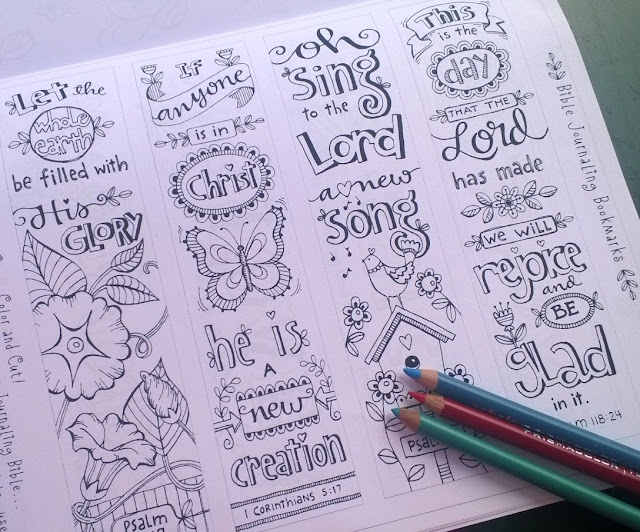 Let the
whole
earth
be filled with
His
GLORY
Psalm
If
anyone
is in
Christ
he is
A
new
creation
1 Corinthians 5:17
oh
Sing
to the
Lord
a new
song
Psalm
This
is the
day
THAT THE
Lord
has made
we will
rejoice
and
BE
glad
in it.
118:24
Bible Journaling Bookmarks
Color and Cut!
Journaling Bible...